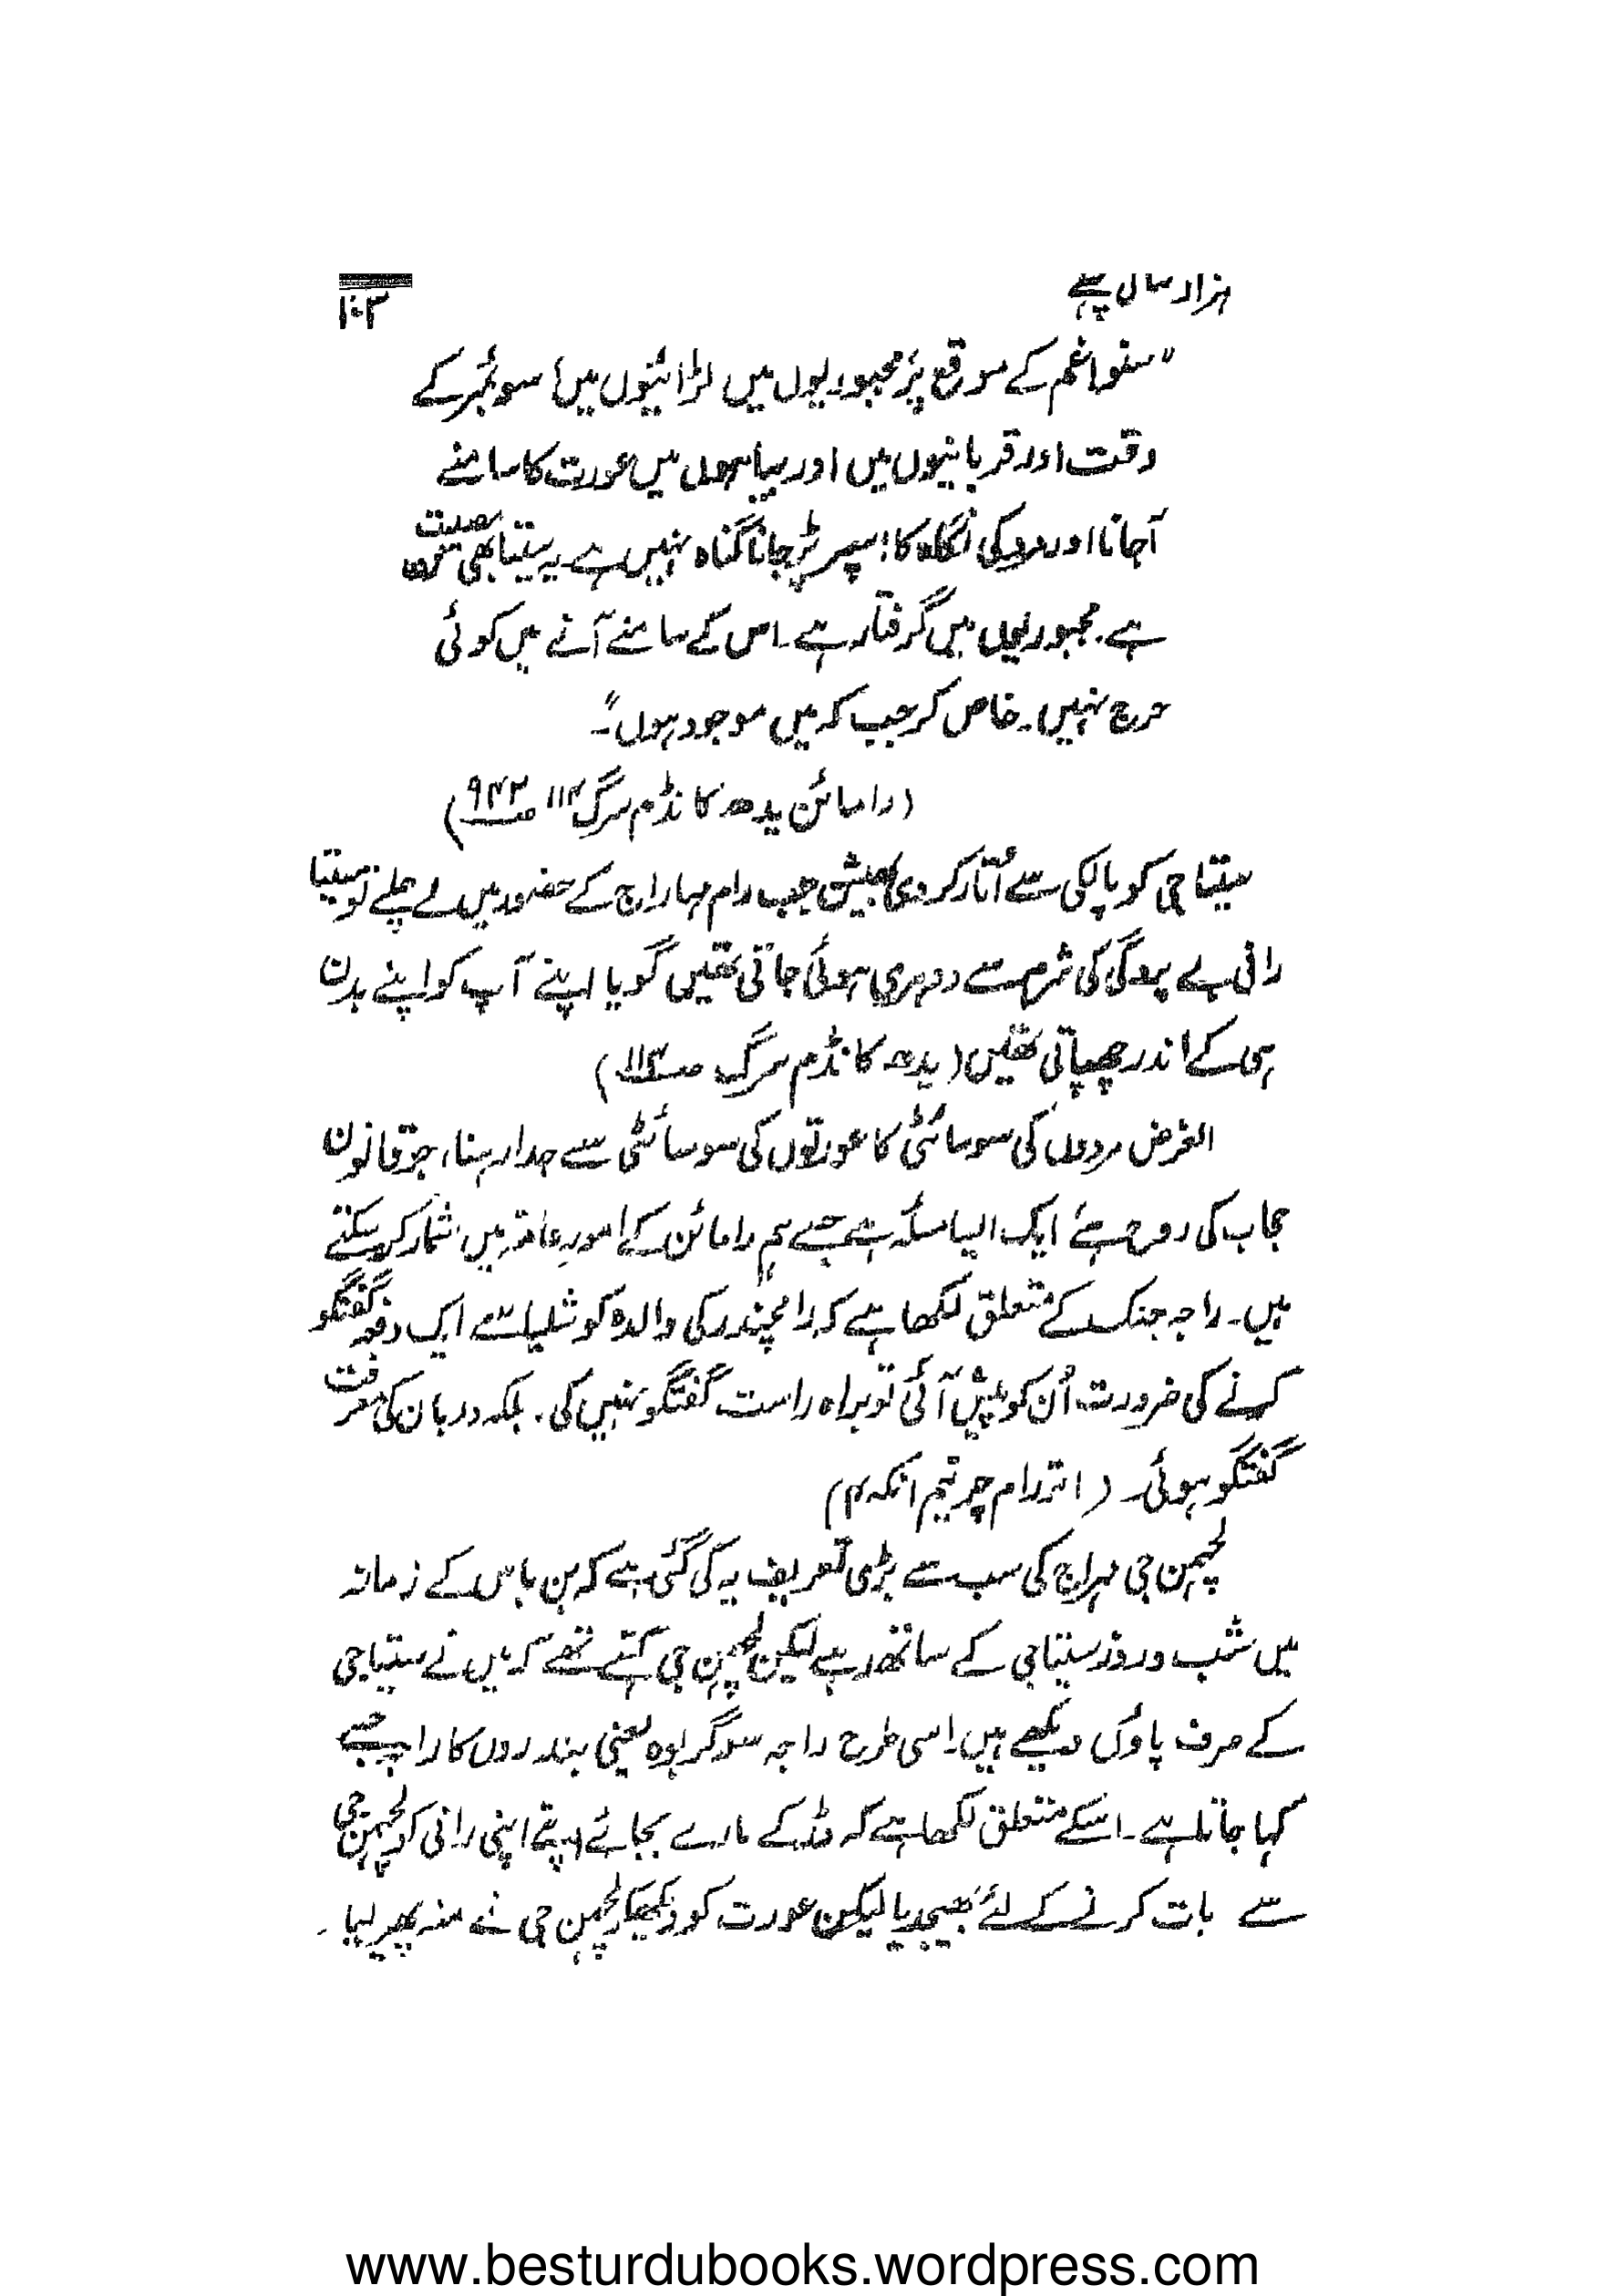 ہزار سال پہلے
۱۰۳
"سنو! غم کے موقع پر، مجبوریوں میں لڑائیوں میں، سوئمبر کے
وقت اور قربانیوں میں اور بیاہوں میں عورت کا سامنے
آجانا اور مرد کی نگاہ کا اسپر پڑ جانا گناہ نہیں ہے۔ یہ سیتا بھی مصیبت
ہے۔ مجبوریوں میں گرفتار ہے۔ اس کے سامنے آنے میں کوئی
حرج نہیں۔ خاص کر جب کہ میں موجود ہوں"۔
(رامائن یدھ کانڈم سرگ ۱۱۴ ص ۹۴۲)
سیتا جی کو پالکی سے اُتار کر وی بھیشن جب رام مہاراج کے حضور میں لے چلے تو سیتا
رانی بے پردگی کی شرم سے دوہری ہوئی جاتی تھیں گویا اپنے آپ کو اپنے بدن
ہی کے اندر چھپاتی تھیں (یدھ کانڈم سرگ ص ۱۱۴)
الغرض مردوں کی سوسائٹی کا عورتوں کی سوسائٹی سے جدا رہنا، جو قانون
حجاب کی روح ہے، ایک ایسا مسئلہ ہے جسے ہم رامائن کے امورِ عامہ میں شمار کر سکتے
ہیں۔ راجہ جنک کے متعلق لکھا ہے کہ رامچندر کی والدہ کوشلیا سے ایک دفعہ گفتگو
کرنے کی ضرورت اُن کو پیش آئی تو براہ راست گفتگو نہیں کی۔ بلکہ دربان کی معرفت
گفتگو ہوئی۔ (اتر رام چرتیم انکہ ۴)
لچھمن جی مہراج کی سب سے بڑی تعریف یہ کی گئی ہے کہ بن باس کے زمانہ
میں شب و روز سیتا جی کے ساتھ رہے لیکن لچھمن جی کہتے تھے کہ میں نے سیتا جی
کے صرف پاؤں دیکھے ہیں۔ اسی طرح راجہ سوگریوہ یعنی بندروں کا راجہ جسے
کہا جاتا ہے۔ اسکے متعلق لکھا ہے کہ ڈر کے مارے بجائے اپنے اپنی رانی کو لچھمن جی
سے بات کرنے کے لئے بھیجدیا لیکن عورت کو دیکھکر لچھمن جی نے منہ پھیر لیا۔
www.besturdubooks.wordpress.com